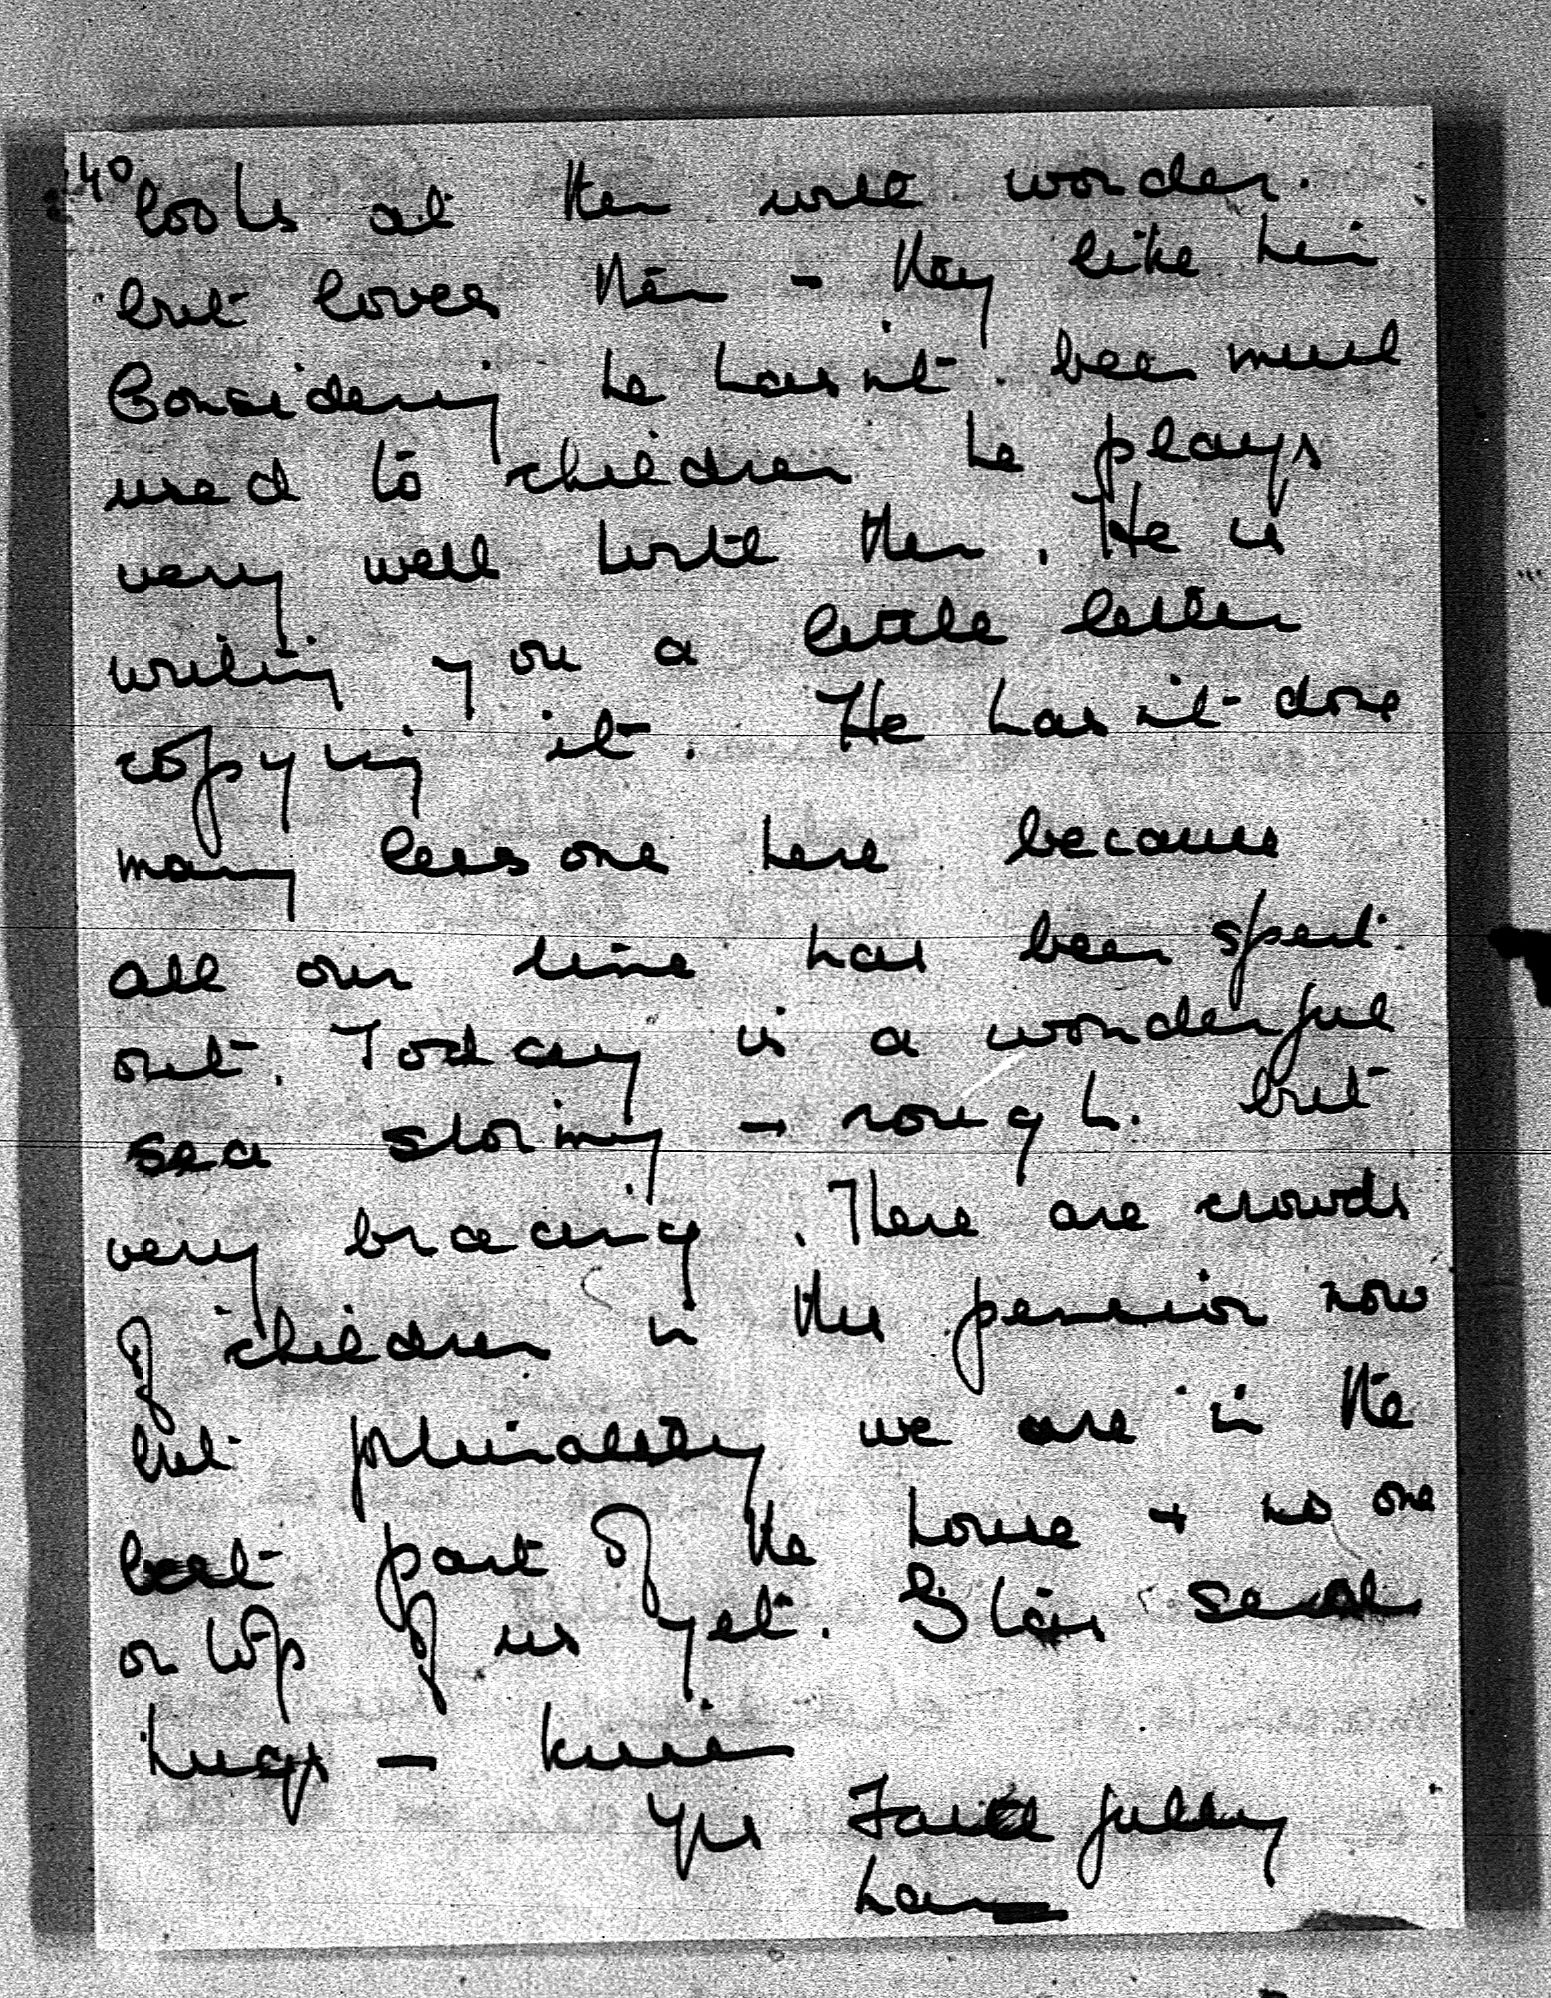 40
looks at them with wonder.
but loves them - they like him
Considering he hasnt been much
used to children he plays
very well with them. He is
writing you a little letter
copying it. He hasnt done
many lessons here because
all our time has been spent
out. Today is a wonderful
sea stormy - rough. but
very bracing. There are crowds
of children in the pension now
but fortunately we are in the
best part of the house + no one
on top of us yet. Blair sends
hugs - kisses
Yrs Faithfully